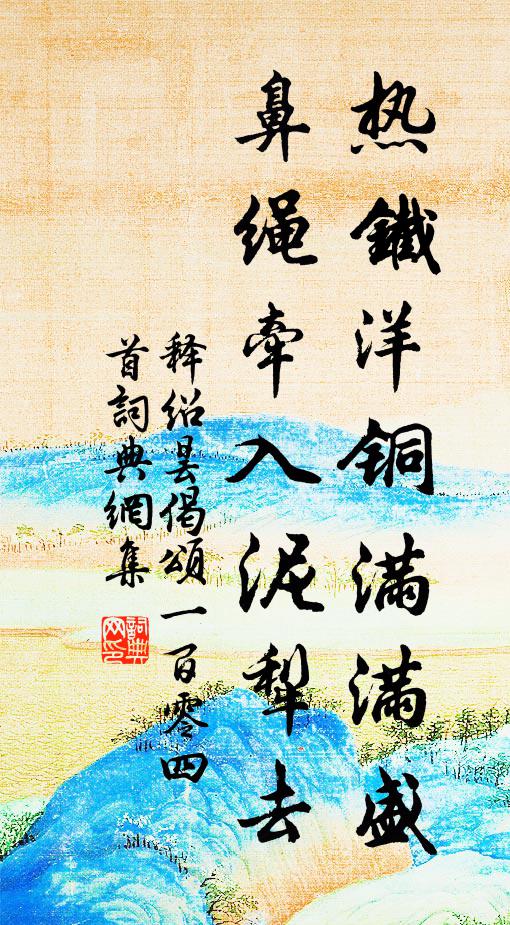 热鐵洋铜满满盛
鼻绳牵入泥犁去
释绍昙偈頌一百零四
首詞典網集
詞典网印